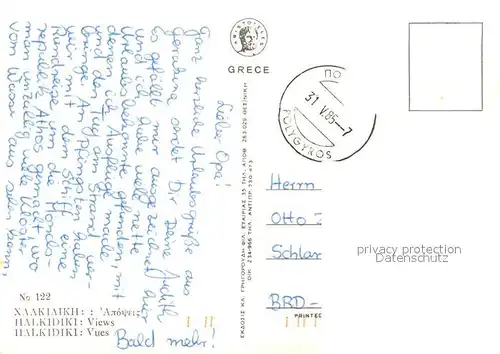 Lieber Opa!
Ganz herzliche Urlaubsgrüße aus
sendet Dir Deine Judith
Es gefällt mir ausgezeichnet hier
und ich habe viele nette
Urlaubsbekannte gefunden, mit
denen ich Ausflüge mache
und den Tag am Strand ver-
bringe. An Pfingsten haben
wir mit dem Schiff eine
Rundreise um die Mönchs-
republik Athos gemacht, wo
man unzählig viele Klöster
vom Wasser aus sehen kann.
Bald mehr!
No 122
ΧΑΛΚΙΔΙΚΗ: : Ἀπόψεις
HALKIDIKI: Views
HALKIDIKI: Vues
ΑΡΙΣΤΟΤΕΛΗΣ
GRECE
ΕΚΔΟΣΙΣ ΚΑΙ. ΓΡΗΓΟΡΟΥΔΗ ΦΙΛ. ΕΤΑΙΡΙΑΣ 35 ΤΗΛ. ΑΠΟΘ. 283.029 ΘΕΣ)ΝΙΚΗ
ΟΙΚ. 234-966 ΤΗΛ. ΑΝΤΙΠΡ.
31 V.85-7
POLYGYROS
Herrn
Otto
Schlar
BRD-
PRINTED
privacy protection
Datenschutz